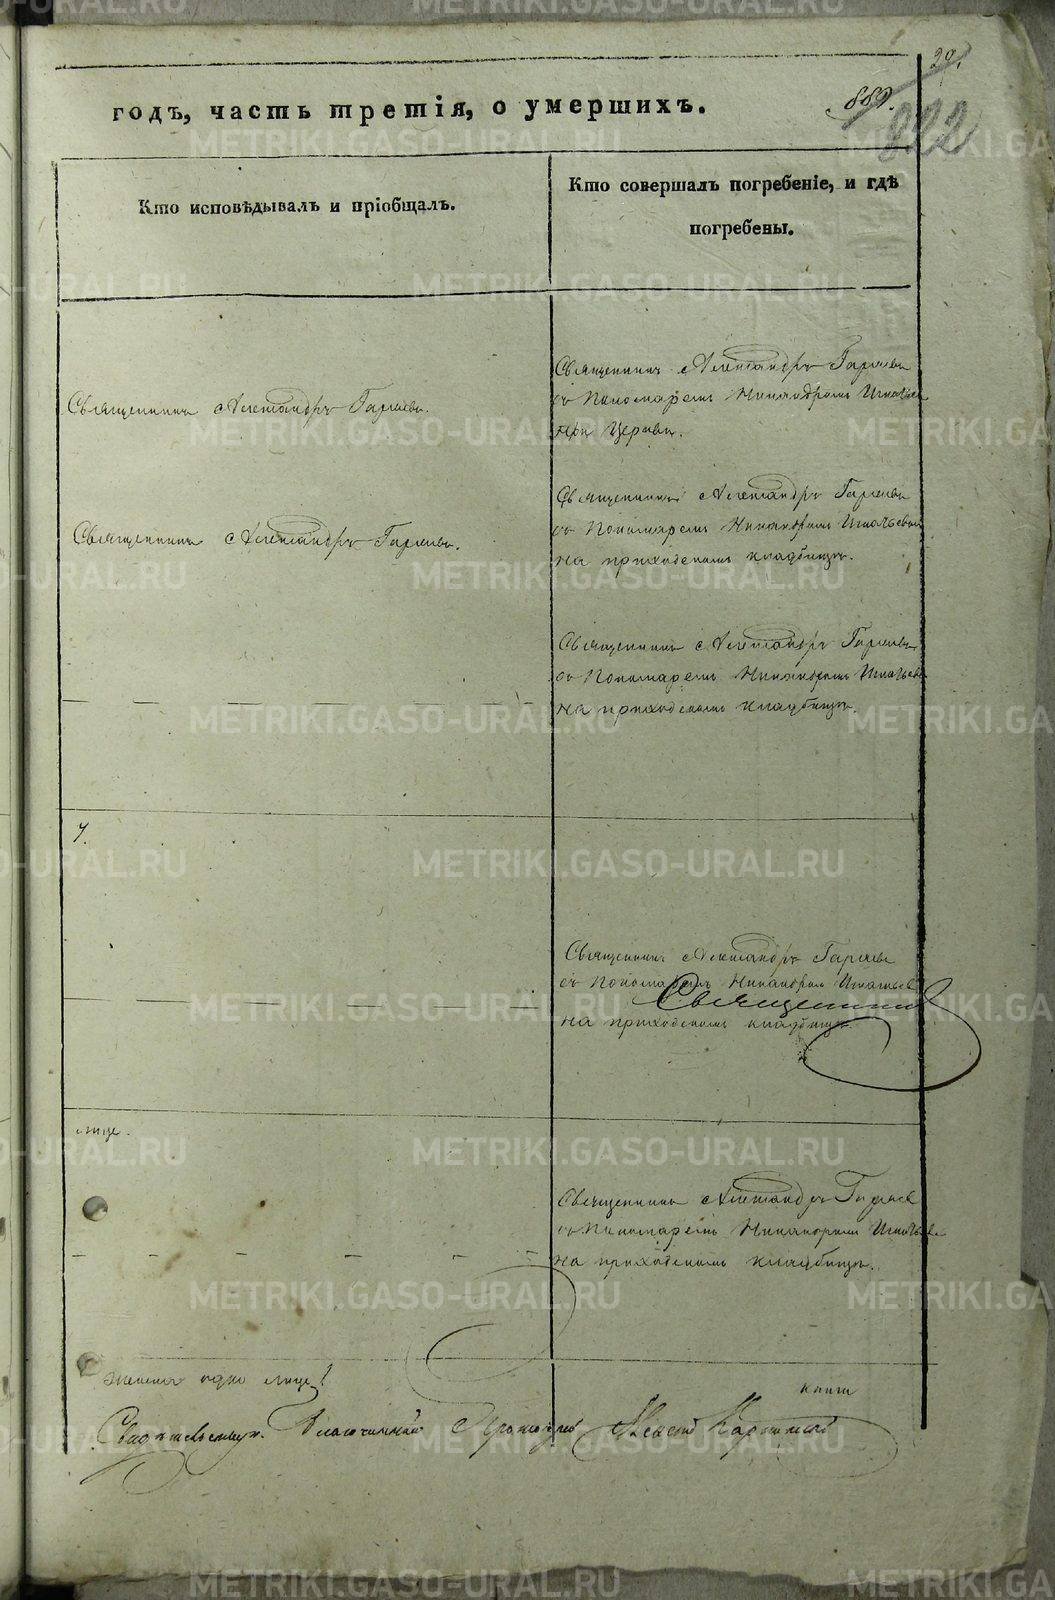 29.
889.
822
годъ, часть третія, о умершихъ.
Кто исповѣдывалъ и пріобщалъ.
Кто совершалъ погребеніе, и гдѣ
погребены.
Священникъ Александръ Гаряевъ.
Священникъ Александръ Гаряевъ
съ Пономаремъ Никандромъ Игнатьев
при Церкви.
Священникъ Александръ Гаряевъ.
Священникъ Александръ Гаряевъ
съ Пономаремъ Никандромъ Игнатьевым
на приходскомъ кладбищѣ.
Священникъ Александръ Гаряевъ
съ Пономаремъ Никандромъ Игнатьев
на приходскомъ кладбищѣ.
Священникъ Александръ Гаряев
съ Пономаремъ Никандром Игнатьев
Священникъ
на приходскомъ кладбищѣ.
лице.
Священникъ Александръ Гаряев
съ Пономаремъ Никандромъ Игнатьев
на приходскомъ кладбищѣ.
женска одно лице
книги
Свидѣтельствую. Благочинный Протоіерей
METRIKI.GASO-URAL.RU